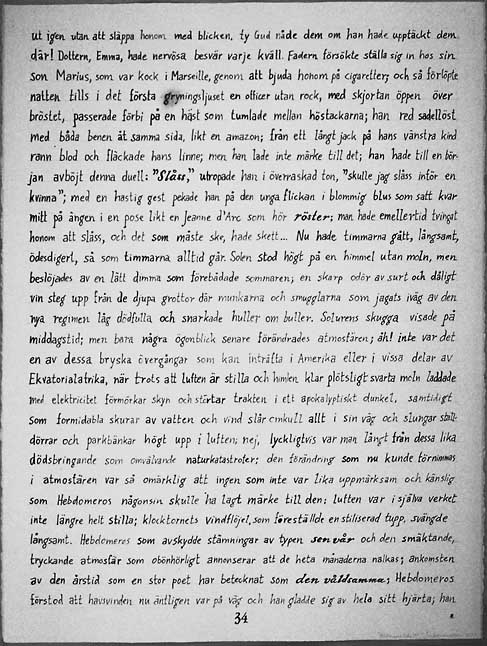 ut igen utan att släppa honom med blicken, ty Gud nåde dem om han hade upptäckt dem
där! Dottern, Emma, hade nervösa besvär varje kväll. Fadern försökte ställa sig in hos sin
son Marius, som var kock i Marseille, genom att bjuda honom på cigaretter; och så förlöpte
natten tills i det första gryningsljuset en officer utan rock, med skjortan öppen över
bröstet, passerade förbi på en häst som tumlade mellan höstackarna; han red sadellöst
med båda benen åt samma sida, likt en amazon; från ett långt jack på hans vänstra kind
rann blod och fläckade hans linne; men han lade inte märke till det; han hade till en bör-
jan avböjt denna duell: "Slåss," utropade han i överraskad ton, "skulle jag slåss inför en
kvinna"; med en hastig gest pekade han på den unga flickan i blommig blus som satt kvar
mitt på ängen i en pose likt en Jeanne d'Arc som hör röster; man hade emellertid tvingat
honom att slåss, och det som måste ske, hade skett... Nu hade timmarna gått, långsamt,
ödesdigert, så som timmarna alltid går. Solen stod högt på en himmel utan moln, men
beslöjades av en lätt dimma som förebådade sommaren; en skarp odör av surt och dåligt
vin steg upp från de djupa grottor där munkarna och smugglarna som jagats iväg av den
nya regimen låg dödfulla och snarkade huller om buller. Solurens skugga visade på
middagstid; men bara några ögonblick senare förändrades atmosfären; åh! inte var det
en av dessa bryska övergångar som kan inträffa i Amerika eller i vissa delar av
Ekvatorialafrika, när trots att luften är stilla och himlen klar plötsligt svarta moln laddade
med elektricitet förmörkar skyn och störtar trakten i ett apokalyptiskt dunkel, samtidigt
som formidabla skurar av vatten och vind slår omkull allt i sin väg och slungar stall-
dörrar och parkbänkar högt upp i luften; nej, lyckligtvis var man långt från dessa lika
dödsbringande som omvälvande naturkatastrofer; den förändring som nu kunde förnimmas
i atmosfären var så omärklig att ingen som inte var lika uppmärksam och känslig
som Hebdomeros någonsin skulle ha lagt märke till den: luften var i själva verket
inte längre helt stilla; klocktornets vindflöjel, som föreställde en stiliserad tupp, svängde
långsamt. Hebdomeros som avskydde stämningar av typen sen vår och den smäktande,
tryckande atmosfär som obönhörligt annonserar att de heta månaderna nalkas; ankomsten
av den årstid som en stor poet har betecknat som den våldsamma; Hebdomeros
förstod att havsvinden nu äntligen var på väg och han gladde sig av hela sitt hjärta; han
34